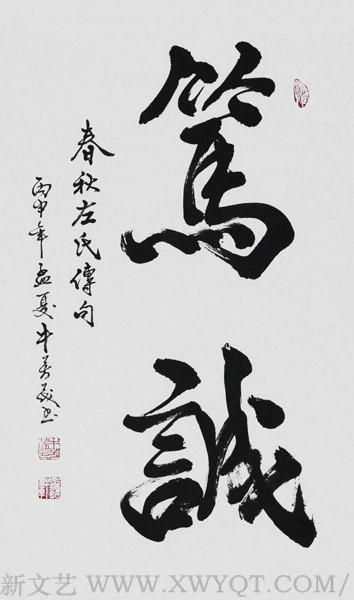 篤誠
春秋左氏傳句
丙申年孟夏牛美茂书
新文艺 WWW.XWYQT.COM/